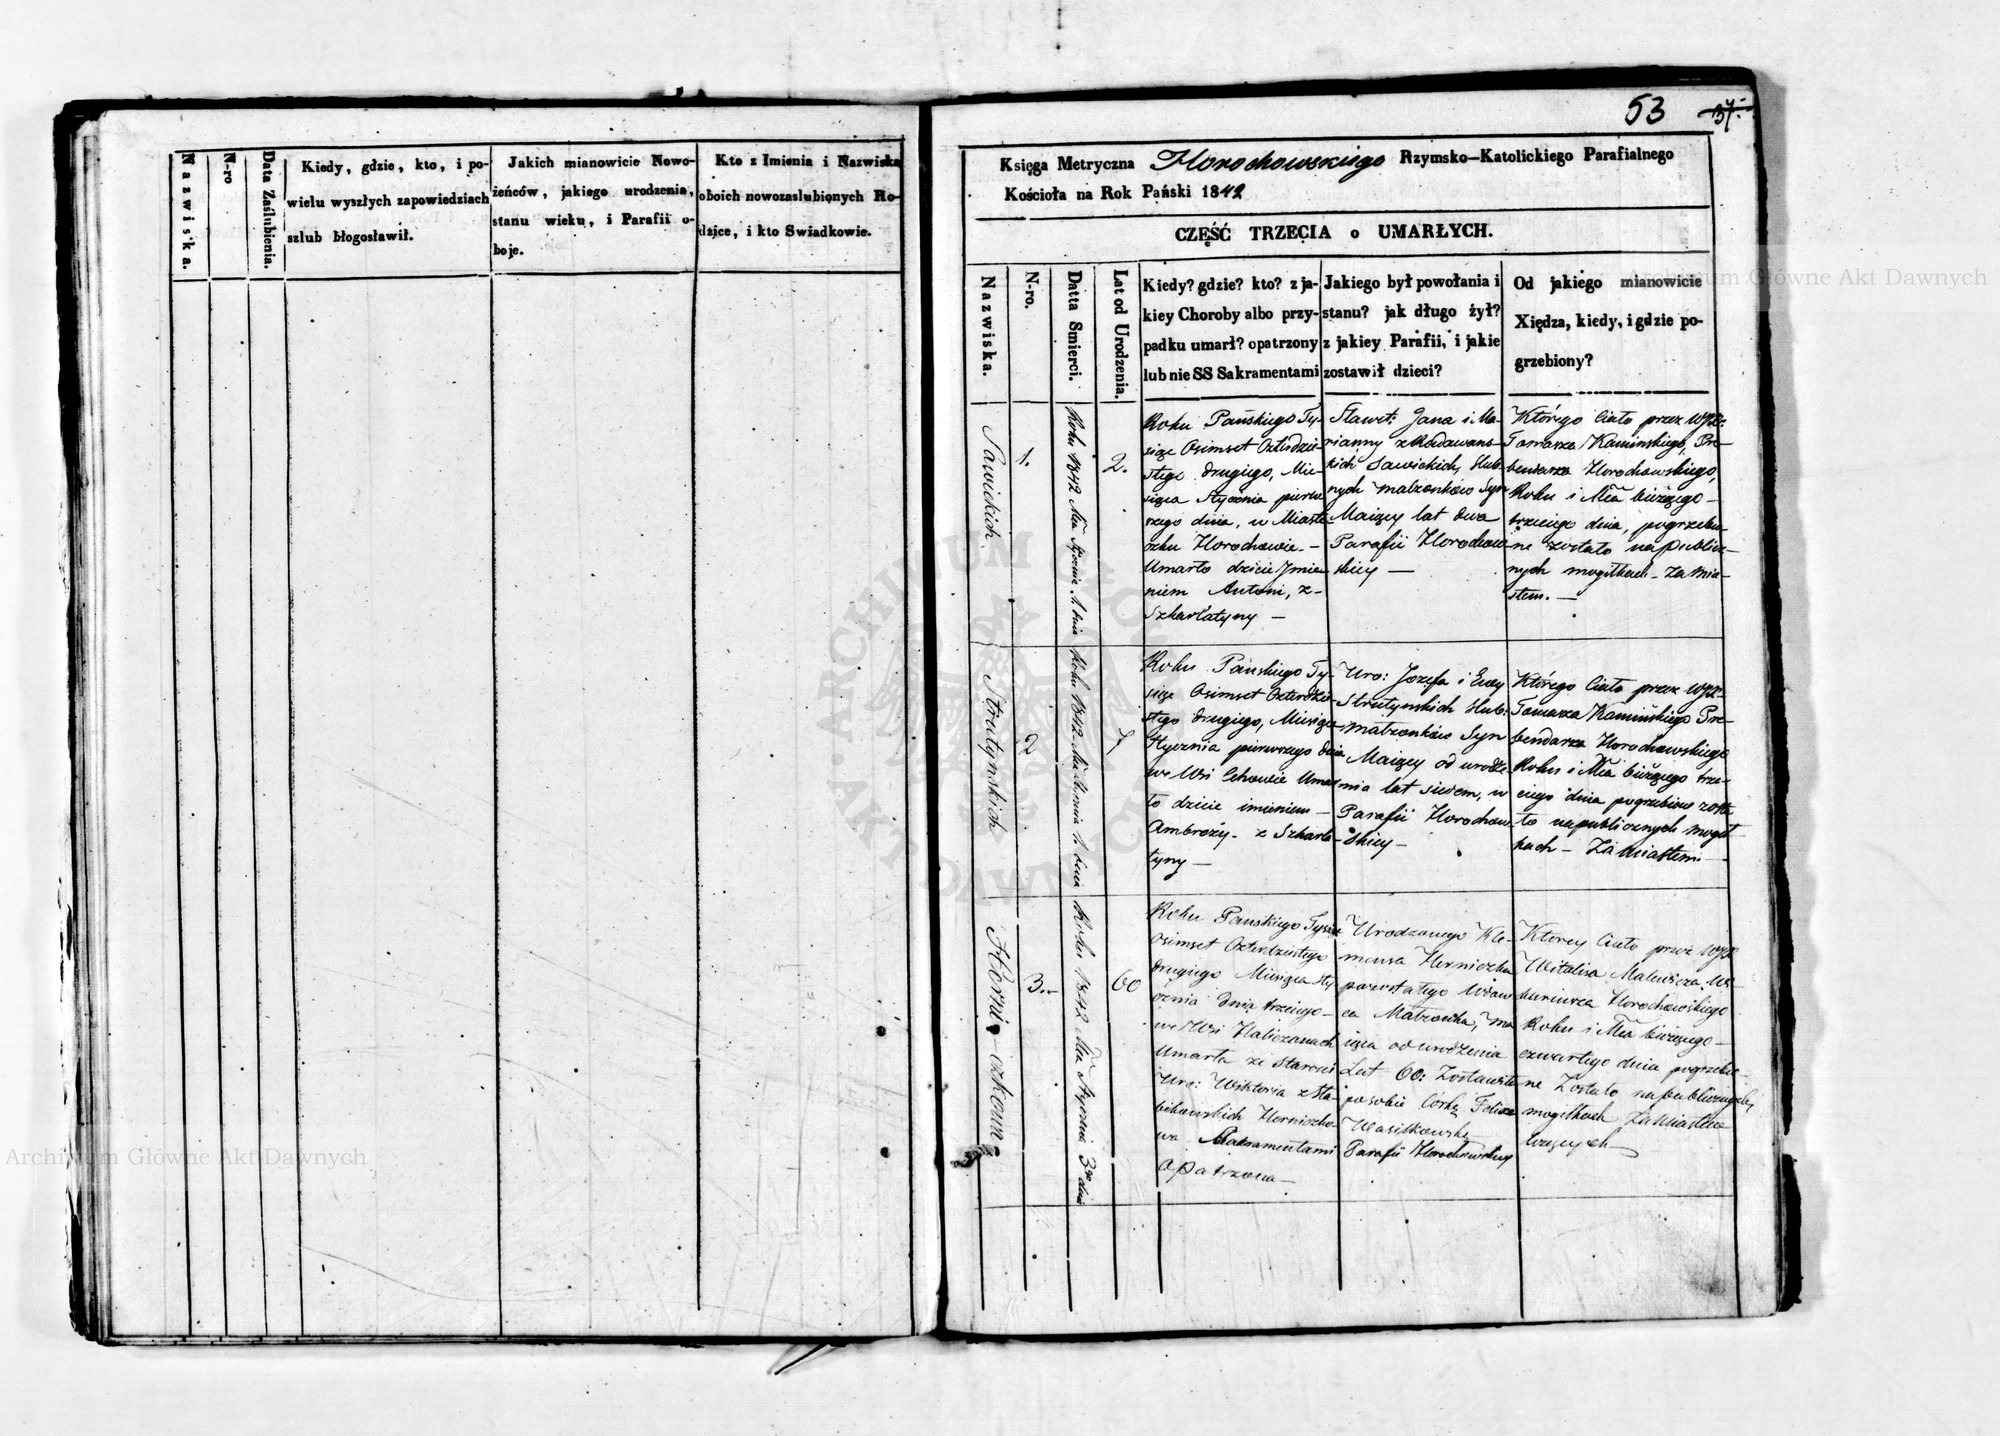 Nazwiska.
N-ro
Data Zaślubienia.
Kiedy, gdzie, kto, i po-
wielu wyszłych zapowiedziach
szlub błogosławił.
Jakich mianowicie Nowo-
żeńców, jakiego urodzenia,
stanu wieku, i Parafii o-
boje.
Kto z Imienia i Nazwiska
oboich nowozaslubionych Ro-
dzice, i kto Swiadkowie.
53
Księga Metryczna Horochowskiego Rzymsko-Katolickiego Parafialnego
Kościoła na Rok Pański 1842
CZĘŚĆ TRZECIA o UMARŁYCH.
Nazwiska.
N-ro.
Datta Smierci.
Lat od Urodzenia.
Kiedy? gdzie? kto? z ja-
kiey Choroby albo przy-
padku umarł? opatrzony
lub nie SS Sakramentami
Jakiego był powołania i
stanu? jak długo żył?
z jakiey Parafii, i jakie
zostawił dzieci?
Od jakiego mianowicie
Xiędza, kiedy, i gdzie po-
grzebiony?
Sawickich
1.
Roku 1842 Mca Stycznia 1. dnia
2.
Roku Pańskiego Ty-
siąc Osimset Czterdzie-
stego drugiego, Mie-
siąca Stycznia pierw-
szego dnia, w Miaste-
czku Horochowie. —
Umarło dziecie Jmie-
niem Antoni, z-
Szkarlatyny —
Sławet: Jana i Ma-
rianny
Sawickich, Slub-
nych małzonków Syn
Maiący lat dwa
Parafii Horochow-
skiey —
Którego Ciało przez WJX.
Tomasza Kaminskiego, Pre-
bendarza Horochowskiego,
Roku i Mca bieżącego —
trzeciego dnia, pogrzebio-
ne zostało na publicz-
nych mogiłkach za mia-
stem. —
Strutynskich
2
Roku 1842 Mca Stycznia 1. dnia
7
Roku Pańskiego Ty-
siąc Osimset Czterdzie-
stego drugiego, Miesiąca
Stycznia pierwszego dnia
we Wsi Umar-
ło dziecie imieniem —
Ambroży - z Szkarla-
tyny —
Uro: Jozefa i Ewy
Strutynskich Slub:
małzonków Syn
Maiący od urodze-
nia lat siedem, w
Parafii Horochow-
skiey —
Którego Ciało przez WJX.
Tomasza Kamińskiego Pre-
bendarza Horochowskiego
Roku i Mca bieżącego trze-
ciego dnia pogrzebione zosta-
ło na publicznych mogił-
kach — Za miastem —
Horni-czkowa
3.
Roku 1842 Mca Stycznia 3go dnia
60
Roku Pańskiego Tysiąc
Osimset Czterdziestego
drugiego Miesiąca Sty-
cznia dnia trzeciego —
we Wsi Haliczanach
Umarła ze starości
Uro: Wiktoria z
Horniczko-
wa Sakramentami
opatrzona —
Urodzonego Kle-
mensa Horniczka
pozostałego Wdow-
ca Małzonka, ma-
iąca od urodzenia
Lat 60: Zostawiła
po sobie Córkę
Wasilkowskę
Parafii Horochowskiey
Ktorey Ciało przez WJX
Witalisa Malewicza, Wi-
kariusza Horochowskiego
Roku i Mca bieżącego —
czwartego dnia pogrzebio-
ne Zostało na publicznych
mogiłkach Za Miastem
lezących
Archiwum Główne Akt Dawnych
Archiwum Główne Akt Dawnych